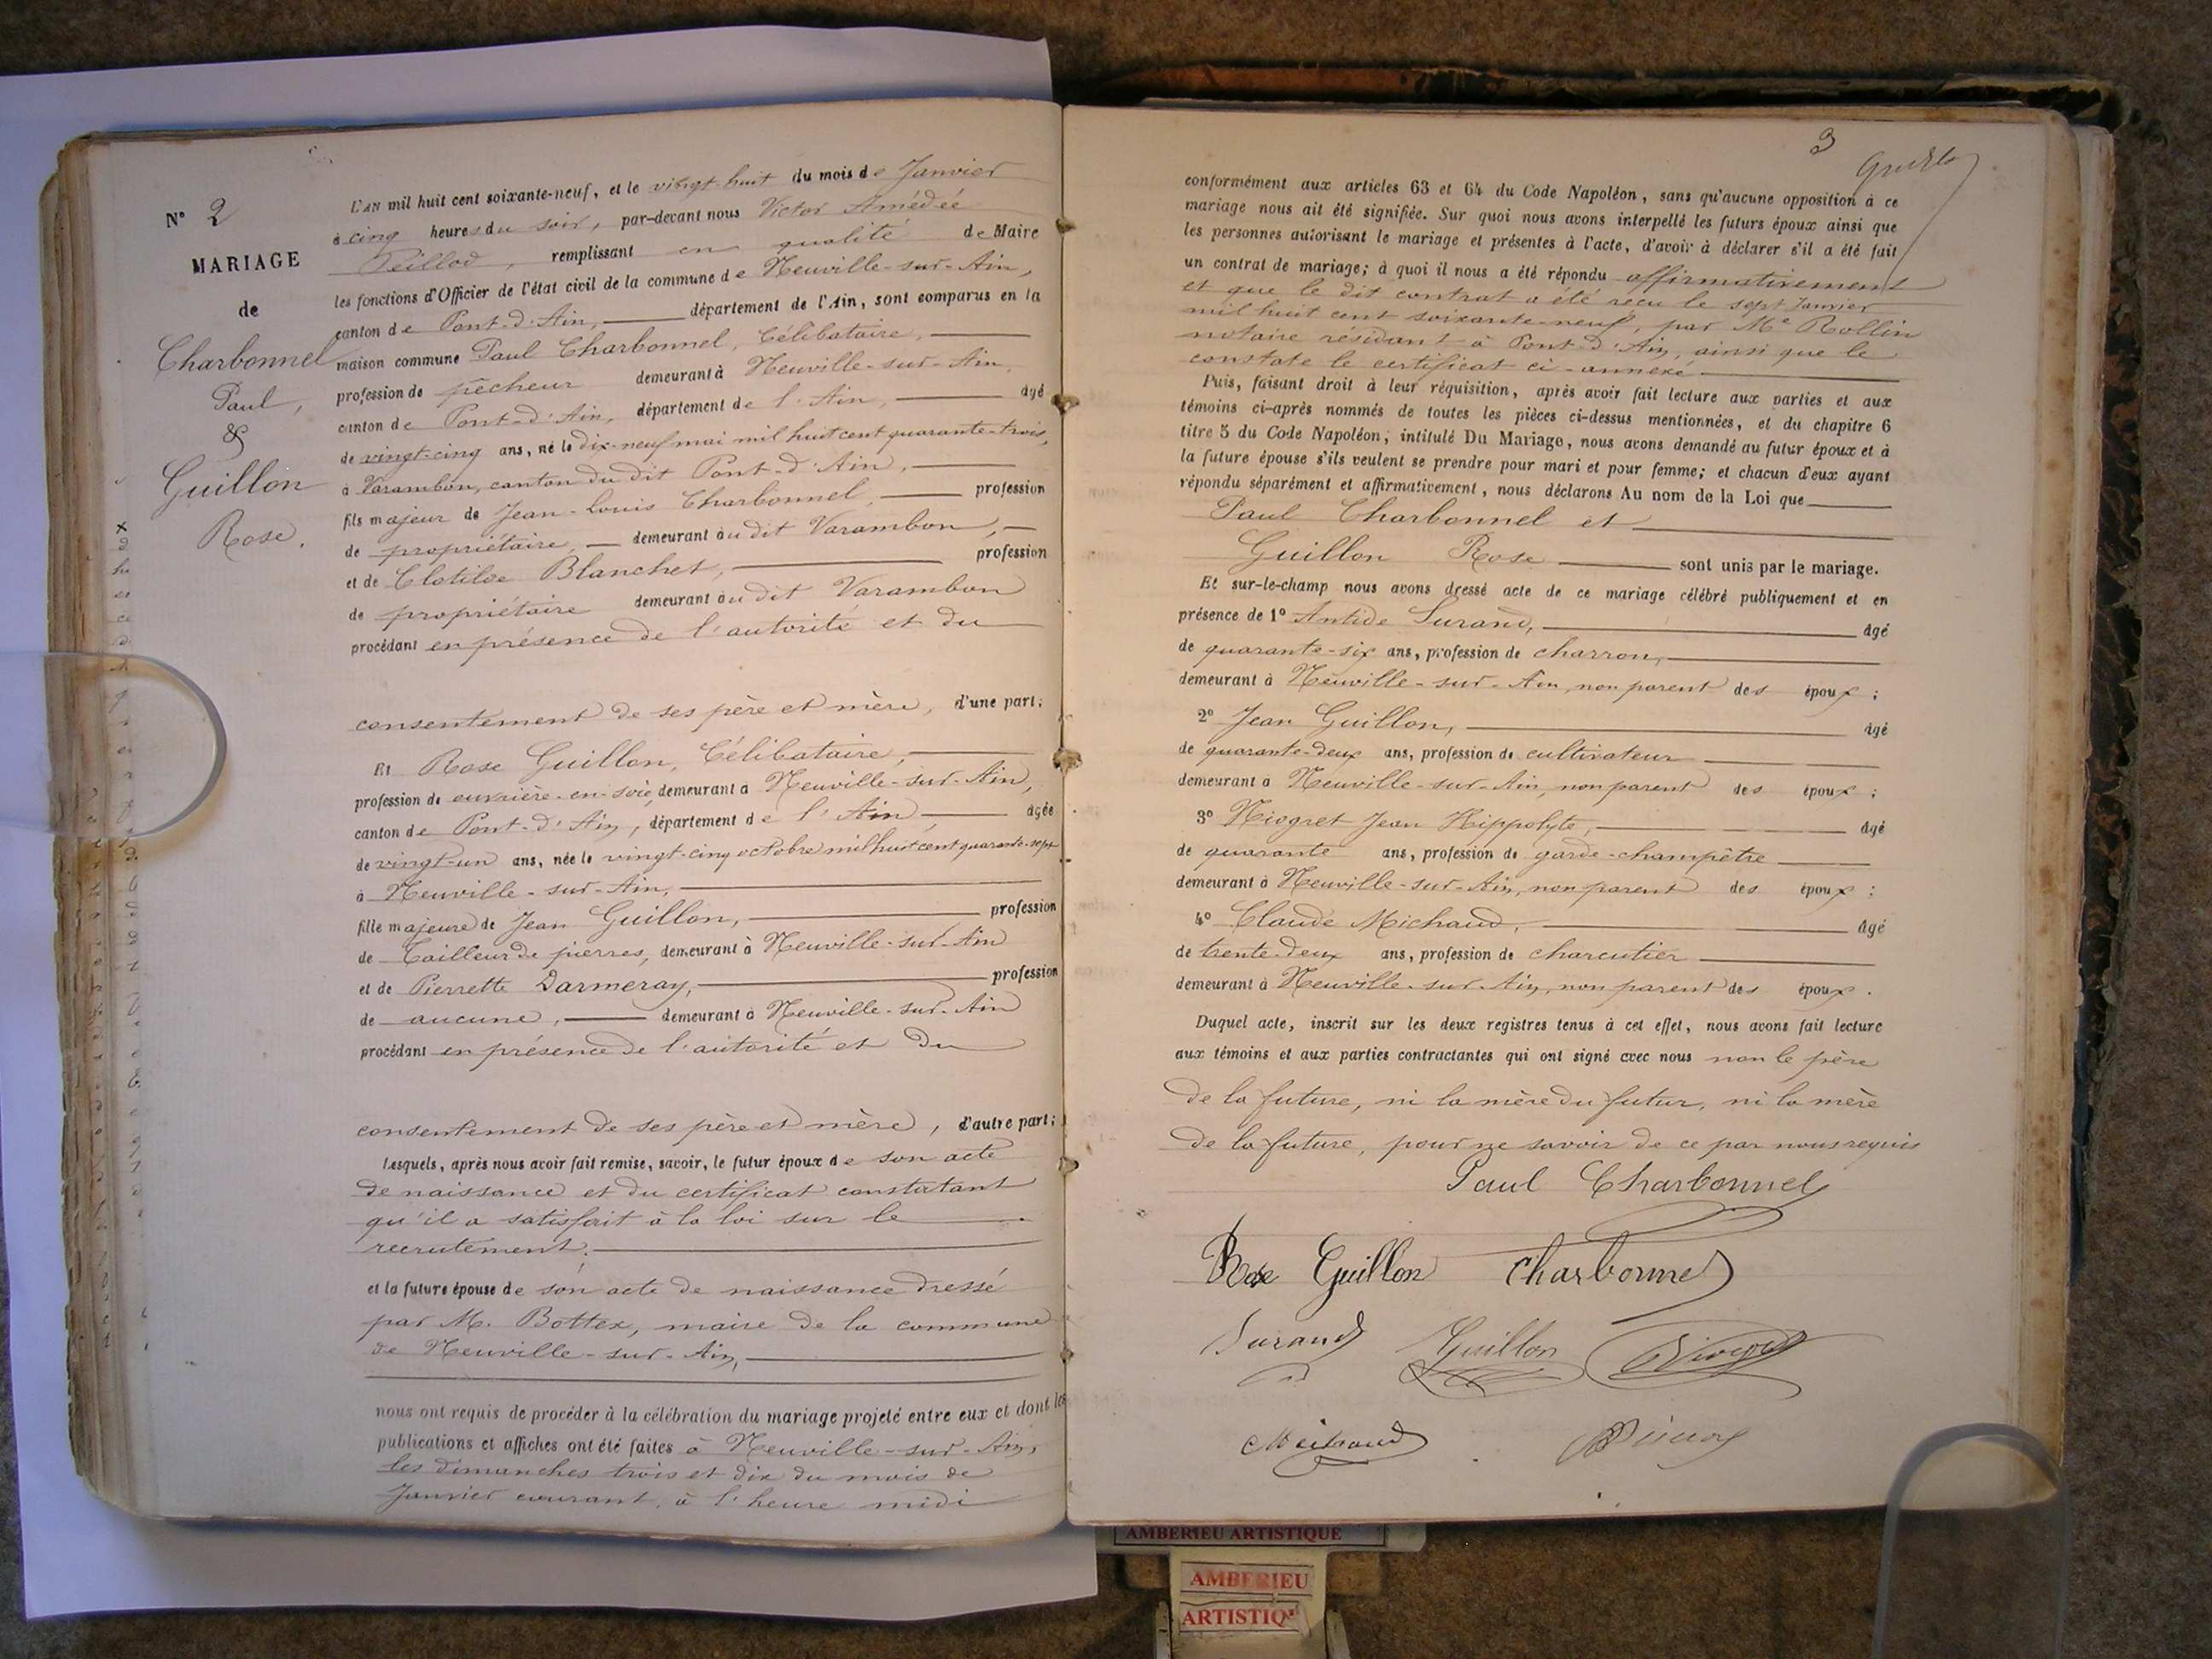 N° 2
MARIAGE
de
Charbonnel
Paul,
&
Guillon
Rose.
L'AN mil huit cent soixante-neuf, et le vingt-huit du mois de Janvier
à cinq heures du soir, par-devant nous Victor Amédée
Peillod, remplissant en qualité de Maire
les fonctions d'Officier de l'état civil de la commune de Neuville-sur-Ain,
canton de Pont-d'Ain, département de l'Ain, sont comparus en la
maison commune Paul Charbonnel, Célibataire,
profession de pêcheur demeurant à Neuville-sur-Ain,
canton de Pont-d'Ain, département de l'Ain, âgé
de vingt-cinq ans, né le dix-neuf mai mil huit cent quarante-trois,
à Varambon, canton du dit Pont-d'Ain,
fils majeur de Jean-Louis Charbonnel, profession
de propriétaire demeurant au dit Varambon,
et de Clotilde Blanchet, profession
de propriétaire demeurant au dit Varambon
procédant en présence de l'autorité et du
consentement de ses père et mère, d'une part;
Et Rose Guillon, Célibataire,
profession de ouvrière-en-soie, demeurant à Neuville-sur-Ain,
canton de Pont-d'Ain, département de l'Ain, âgée
de vingt-un ans, née le vingt-cinq octobre mil huit cent quarante-sept
à Neuville-sur-Ain,
fille majeure de Jean Guillon, profession
de Tailleur de pierres, demeurant à Neuville-sur-Ain
et de Pierrette Darmeray, profession
de aucune, demeurant à Neuville-sur-Ain
procédant en présence de l'autorité et du
consentement de ses père et mère, d'autre part;
Lesquels, après nous avoir fait remise, savoir, le futur époux de son acte
de naissance et du certificat constatant
qu'il a satisfait à la loi sur le
recrutement.
et la future épouse de son acte de naissance dressé
par M. Bottex, maire de la commune
de Neuville-sur-Ain,
nous ont requis de procéder à la célébration du mariage projeté entre eux et dont les
publications et affiches ont été faites à Neuville-sur-Ain,
les dimanches trois et dix du mois de
Janvier courant, à l'heure midi
3
conformément aux articles 63 et 64 du Code Napoléon, sans qu'aucune opposition à ce
mariage nous ait été signifiée. Sur quoi nous avons interpellé les futurs époux ainsi que
les personnes autorisant le mariage et présentes à l'acte, d'avoir à déclarer s'il a été fait
un contrat de mariage; à quoi il nous a été répondu affirmativement
et que le dit contrat a été reçu le sept Janvier
mil huit cent soixante-neuf, par Me Rollin
notaire résidant à Pont-d'Ain, ainsi que le
constate le certificat ci-annexé
Puis, faisant droit à leur réquisition, après avoir fait lecture aux parties et aux
témoins ci-après nommés de toutes les pièces ci-dessus mentionnées, et du chapitre 6
titre 5 du Code Napoléon, intitulé Du Mariage, nous avons demandé au futur époux et à
la future épouse s'ils veulent se prendre pour mari et pour femme; et chacun d'eux ayant
répondu séparément et affirmativement, nous déclarons Au nom de la Loi que
Paul Charbonnel et
Guillon Rose sont unis par le mariage.
Et sur-le-champ nous avons dressé acte de ce mariage célébré publiquement et en
présence de 1° Antide Surand, âgé
de quarante-six ans, profession de charron,
demeurant à Neuville-sur-Ain, non parent des époux;
2° Jean Guillon, âgé
de quarante-deux ans, profession de cultivateur
demeurant à Neuville-sur-Ain, non parent des époux;
3° Niogret Jean Hippolyte, âgé
de quarante ans, profession de garde-champêtre
demeurant à Neuville-sur-Ain, non parent des époux;
4° Claude Michaud, âgé
de trente-deux ans, profession de charcutier
demeurant à Neuville-sur-Ain, non parent des époux.
Duquel acte, inscrit sur les deux registres tenus à cet effet, nous avons fait lecture
aux témoins et aux parties contractantes qui ont signé avec nous non le père
de la future, ni la mère du futur, ni la mère
de la future, pour ne savoir de ce par nous requis
Paul Charbonnel
Rose Guillon Charbonnel
Surand Guillon
Michaud
AMBERIEU ARTISTIQUE
AMBERIEU
ARTISTIQ